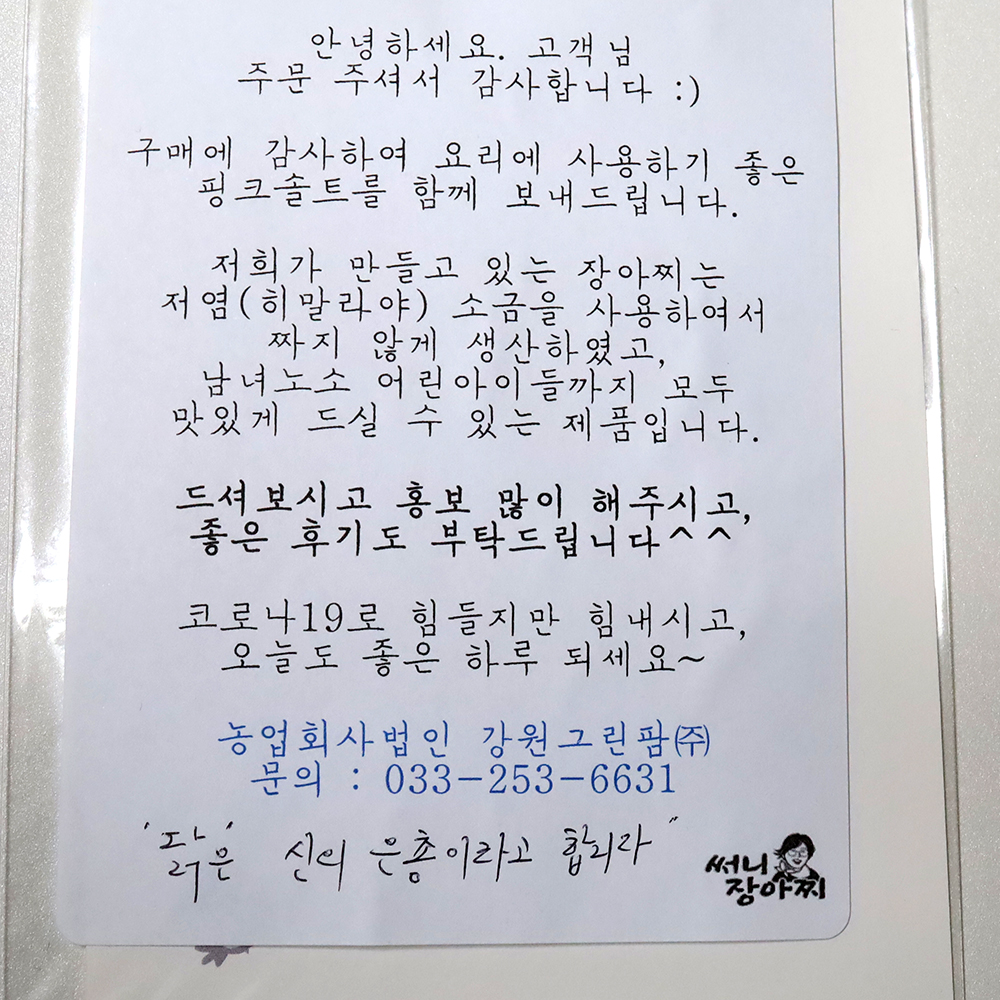 안녕하세요. 고객님
주문 주셔서 감사합니다 :)
구매에 감사하여 요리에 사용하기 좋은
핑크솔트를 함께 보내드립니다.
저희가 만들고 있는 장아찌는
저염(히말라야) 소금을 사용하여서
짜지 않게 생산하였고,
남녀노소 어린아이들까지 모두
맛있게 드실 수 있는 제품입니다.
드셔보시고 홍보 많이 해주시고,
좋은 후기도 부탁드립니다^^
코로나19로 힘들지만 힘내시고,
오늘도 좋은 하루 되세요~
농업회사법인 강원그린팜㈜
문의 : 033-253-6631
신의 은총이라고 합니다"
써니
장아찌